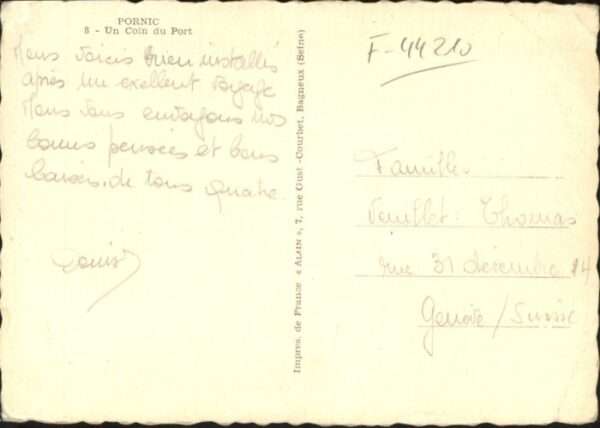 PORNIC
8 - Un Coin du Port
Nous voici bien installés
après un excellent voyage
Nous vous envoyons nos
bonnes pensées et bons
baisers de tous quatre
Impres. de France « ALAIN », 7, rue Gust.-Courbet, Bagneux (Seine)
F-44210
Famille
Thomas
rue 31 décembre 14
Genève / Suisse